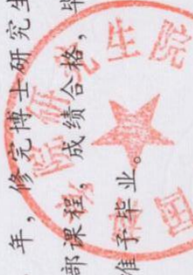 年，修完博士研究生
部课程，成绩合格，毕
准予毕业。
院研究生院